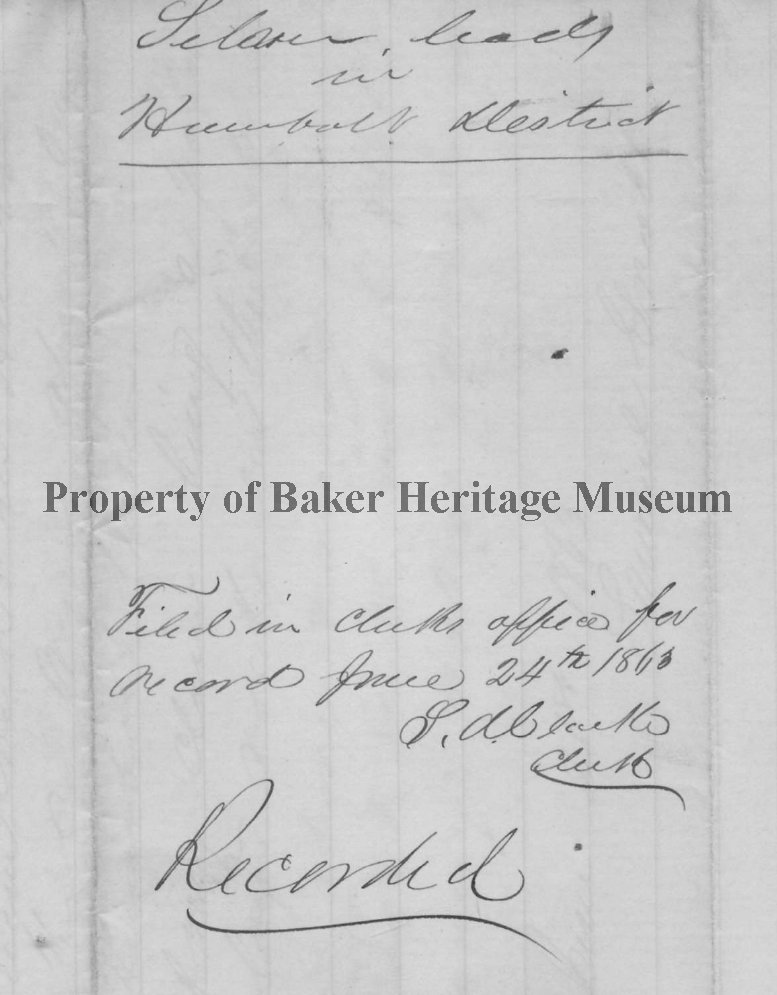 Silver leads
in
Humbolt District
Property of Baker Heritage Museum
Filed in clerks office for
record June 24th 1863
S. A. Clarke
Clerk
Recorded